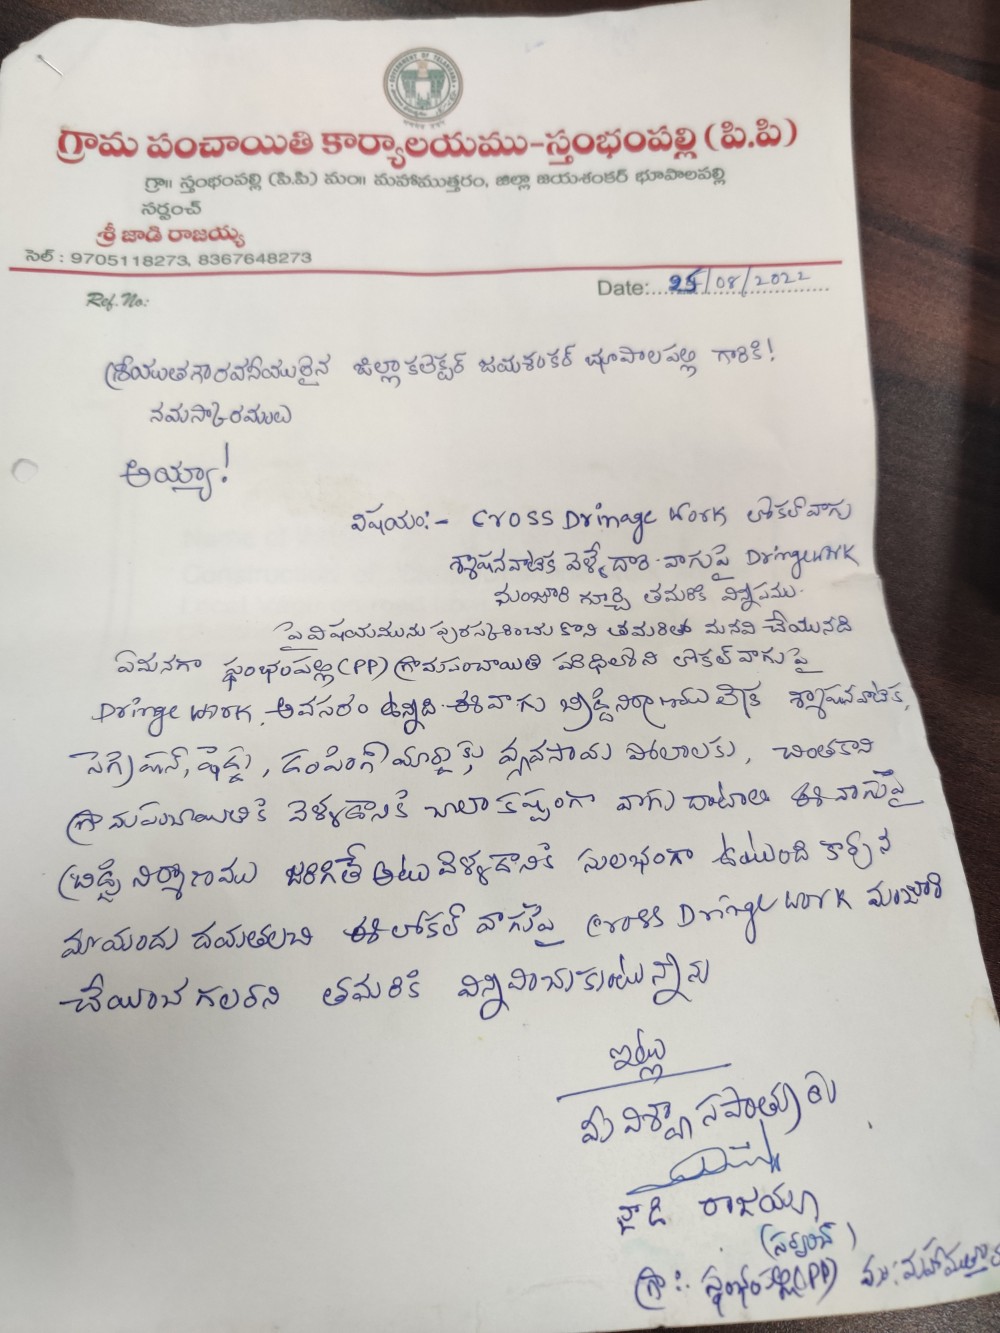 గ్రామ పంచాయితి కార్యాలయము-స్తంభంపల్లి (పి.పి)
గ్రా॥ స్తంభంపల్లి (పి.పి) మం॥ మహాముత్తరం, జిల్లా జయశంకర్ భూపాలపల్లి
సర్పంచ్
శ్రీ జాడి రాజయ్య
సెల్ : 9705118273, 8367648273
Ref. No:
Date:....25/08/2022
శ్రీయుత గౌరవనీయులైన జిల్లా కలెక్టర్ జయశంకర్ భూపాలపల్లి గారికి!
నమస్కారములు
అయ్యా!
విషయం:- Cross Drinage Work లోకల్ వాగు
శ్మాషనవాటిక వెళ్ళేదారి వాగుపై Dringework
మంజూరి గూర్చి తమరికి విన్నపము.
పై విషయమును పురస్కరించుకొని తమరితో మనవి చేయునది
ఏమనగా స్థంభంపల్లి (PP) గ్రామపంచాయితి పరిధిలోని లోకల్ వాగుపై
Dringe work అవసరం ఉన్నది. ఈ వాగు బ్రిడ్జి నిర్మాణము లేక శ్మాషనవాటిక,
సెగ్రిషన్, షెడ్డు, డంపింగ్ యార్డుకు, వ్యవసాయ పొలాలకు, చింతకాని
గ్రామపంచాయితికి వెళ్ళడానికి చాలా కష్టంగా వాగు దాటాలి ఈ వాగుపై
బ్రిడ్జి నిర్మాణము జరిగితే అటు వెళ్ళడానికి సులభంగా ఉంటుంది కావున
మాయందు దయతలచి ఈ లోకల్ వాగుపై Cross Dringe work మంజూరి
చేయించగలరని తమరికి విన్నవించుకుంటున్నాను
ఇట్లు
మీ విశ్వాసపాత్రులు
జాడి రాజయ్య
(సర్పంచ్)
గ్రా:: స్థంభంపల్లి (PP) మం: మహాముత్తారం